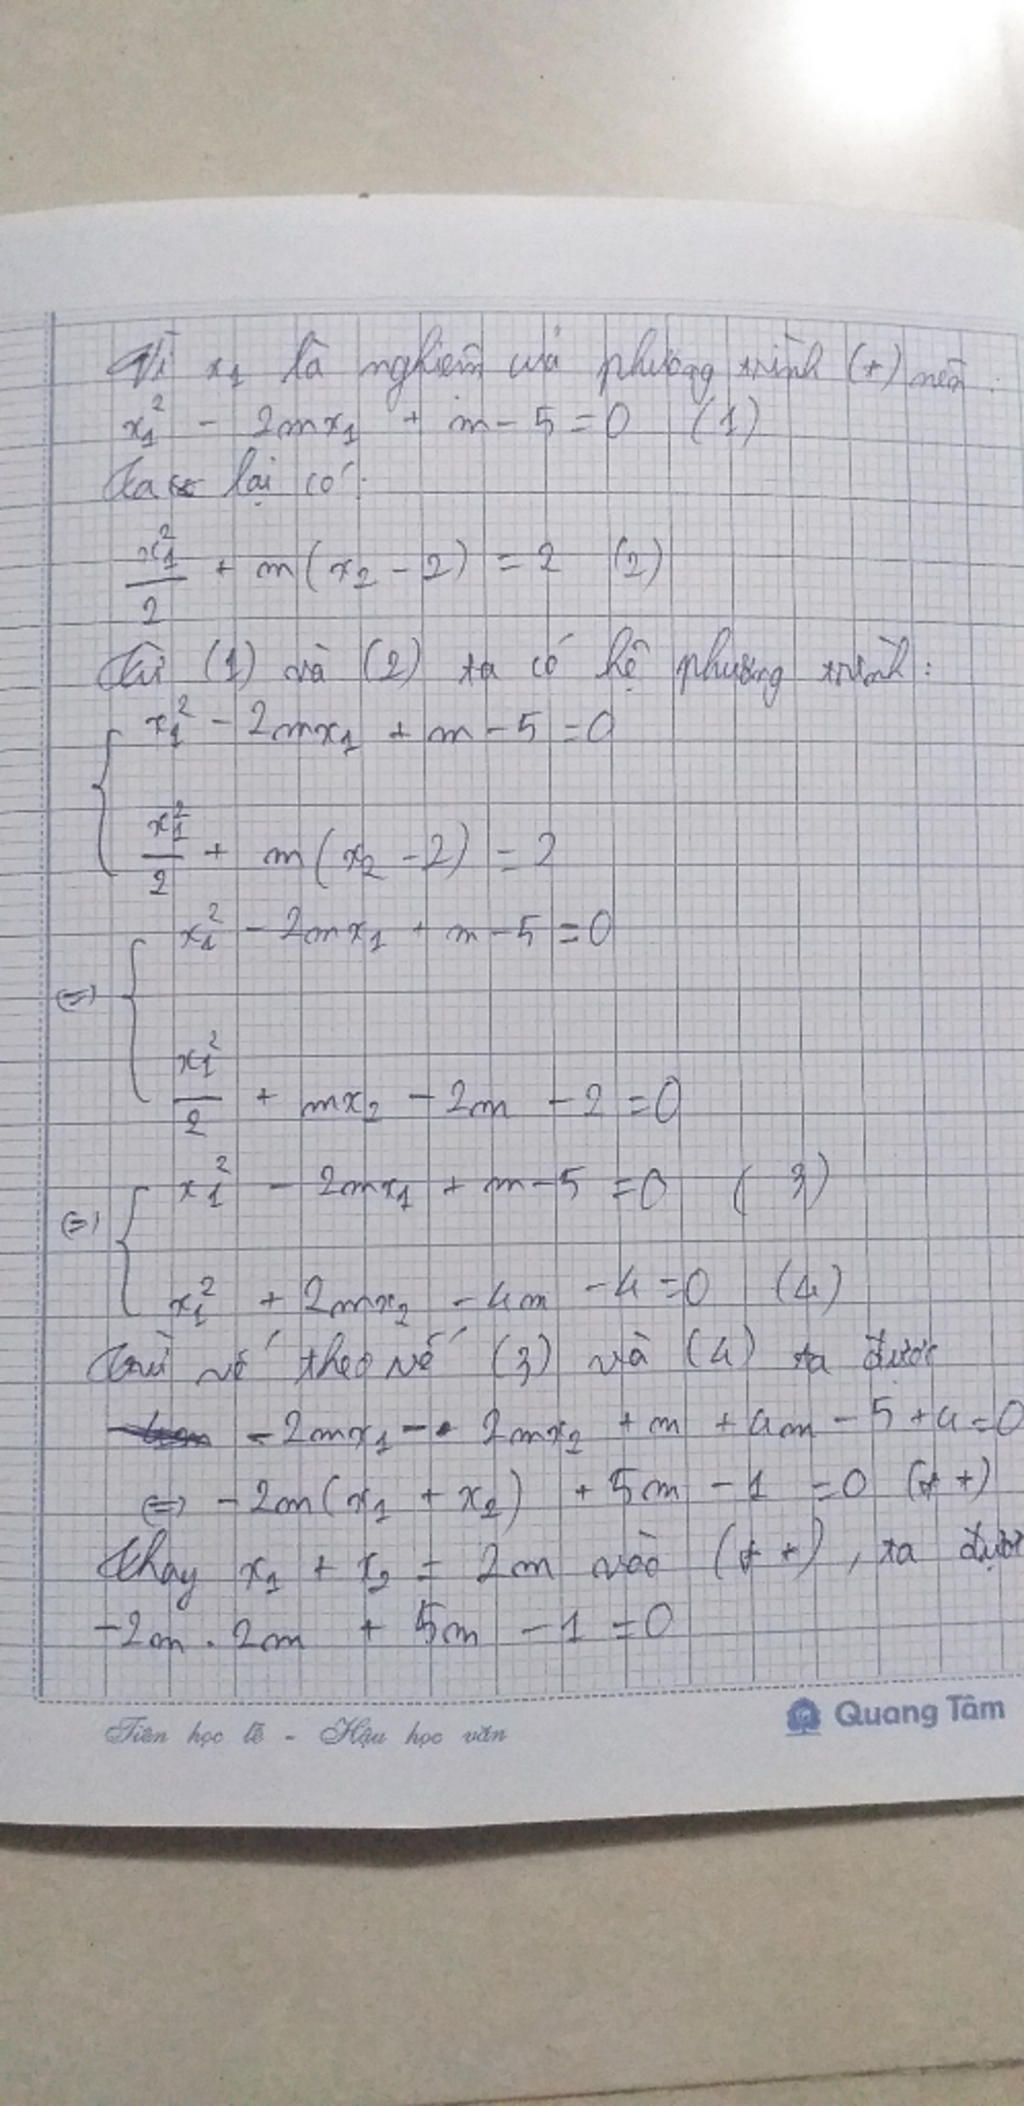 Vì x₁ là nghiệm của phương trình (*) nên:
x₁² - 2mx₁ + m - 5 = 0 (1)
Ta lại có:
x₁²/2 + m(x₂ - 2) = 2 (2)
Từ (1) và (2) ta có hệ phương trình:
{ x₁² - 2mx₁ + m - 5 = 0
x₁²/2 + m(x₂ - 2) = 2
(=) { x₁² - 2mx₁ + m - 5 = 0
x₁²/2 + mx₂ - 2m - 2 = 0
(=) { x₁² - 2mx₁ + m - 5 = 0 (3)
x₁² + 2mx₂ - 4m - 4 = 0 (4)
Trừ vế theo vế (3) và (4) ta được
- 2mx₁ - 2mx₂ + m + 4m - 5 + 4 = 0
(=) - 2m(x₁ + x₂) + 5m - 1 = 0 (**)
Thay x₁ + x₂ = 2m vào (**), ta được
-2m . 2m + 5m - 1 = 0
Tiên học lễ - Hậu học văn
Quang Tâm